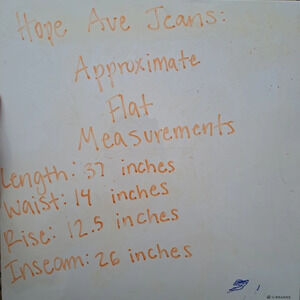 Hope Ave Jeans:
Approximate
Flat
Measurements
Length: 37 inches
Waist: 14 inches
Rise: 12.5 inches
Inseam: 26 inches